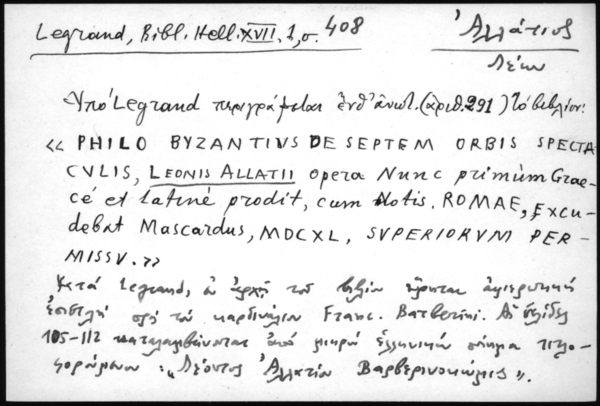 Legrand, Bibl. Hell. XVII. 1, σ. 408
Ἀλλάτιος
Λέων
Ὑπό Legrand περιγράφεται ἔνθ' ἀνωτ. (ἀριθ. 291) τό βιβλίον:
« PHILO BYZANTIVS DE SEPTEM ORBIS SPECTA
CVLIS, LEONIS ALLATII opera Nunc primùm Grae-
cé et latinè prodit, cum Notis. ROMAE, Excu-
debat Mascardus, MDCXL, SVPERIORVM PER-
MISSV. »
Κατά Legrand, ἐν ἀρχῇ τοῦ βιβλίου εὕρηται ἀφιερωτική
ἐπιστολή πρός τόν καρδινάλιον Franc. Barberini. Αἱ σελίδες
105-112 καταλαμβάνονται ἀπό μικρό ἑλληνικόν ποίημα τιτλο-
φορούμενον : „Λέοντος Ἀλλατίου Βαρβερινοκώμιος".